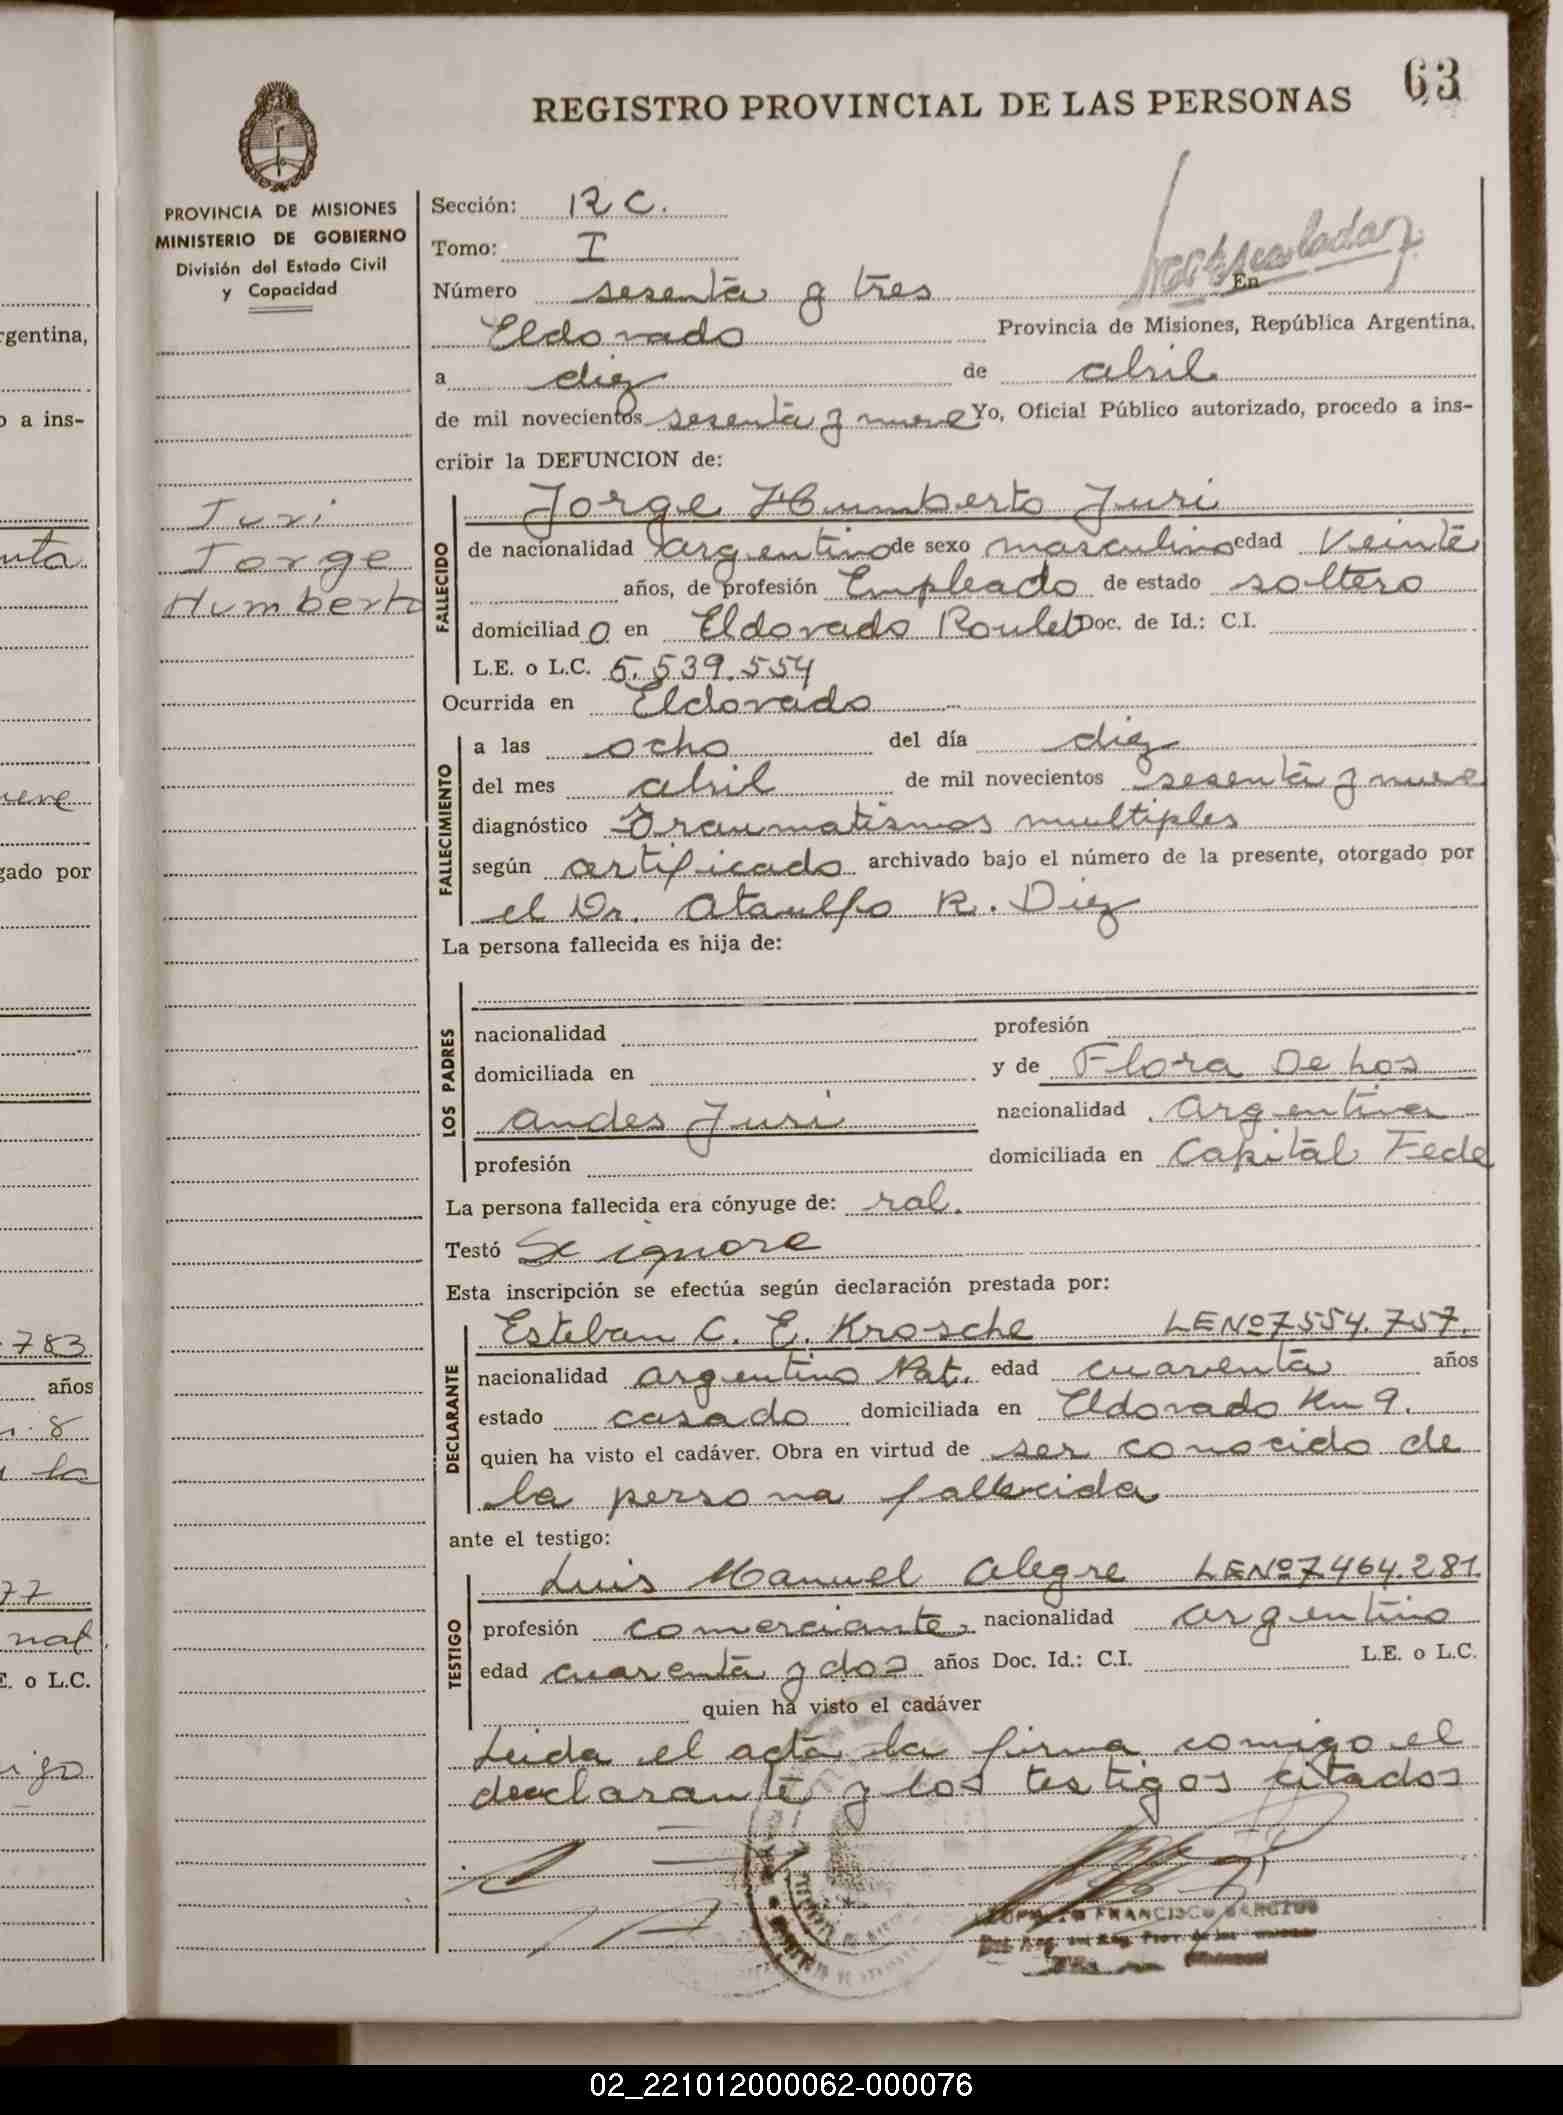 63
REGISTRO PROVINCIAL DE LAS PERSONAS
PROVINCIA DE MISIONES
MINISTERIO DE GOBIERNO
División del Estado Civil
y Capacidad
Sección: R C.
Tomo: I
Número sesenta y tres En
Eldorado Provincia de Misiones, República Argentina,
a diez de abril
de mil novecientos sesenta y nueve Yo, Oficial Público autorizado, procedo a ins-
cribir la DEFUNCION de:
Juri
Jorge
Humberto
FALLECIDO
Jorge Humberto Juri
de nacionalidad argentino de sexo masculino edad Veinte
años, de profesión Empleado de estado soltero
domiciliado en Eldorado Roulet Doc. de Id.: C.I.
L.E. o L.C. 5.539.554
Ocurrida en Eldorado
FALLECIMIENTO
a las ocho del día diez
del mes abril de mil novecientos sesenta y nueve
diagnóstico Traumatismos multiples
según certificado archivado bajo el número de la presente, otorgado por
el Dr. Ataulfo R. Diez
La persona fallecida es hija de:
LOS PADRES
nacionalidad profesión
domiciliada en y de Flora De Los
Andes Juri nacionalidad argentina
profesión domiciliada en Capital Fede
La persona fallecida era cónyuge de: ral.
Testó Se ignora
Esta inscripción se efectúa según declaración prestada por:
DECLARANTE
Esteban C. E. Krosche LENº7554.757.
nacionalidad argentino Nat. edad cuarenta años
estado casado domiciliada en Eldorado Km 9.
quien ha visto el cadáver. Obra en virtud de ser conocido de
la persona fallecida
ante el testigo:
TESTIGO
Luis Manuel Alegre LENº7.464.281.
profesión comerciante nacionalidad argentino
edad cuarenta y dos años Doc. Id.: C.I. L.E. o L.C.
quien ha visto el cadáver
Leida el acta la firma comigo el
declarante y los testigos citados
FRANCISCO
rgentina,
o a ins-
gado por
783
años
8
la
77
nat.
E. o L.C.
02_221012000062-000076